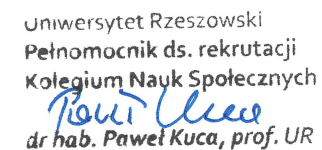 Uniwersytet Rzeszowski
Pełnomocnik ds. rekrutacji
Kolegium Nauk Społecznych
dr hab. Paweł Kuca, prof. UR